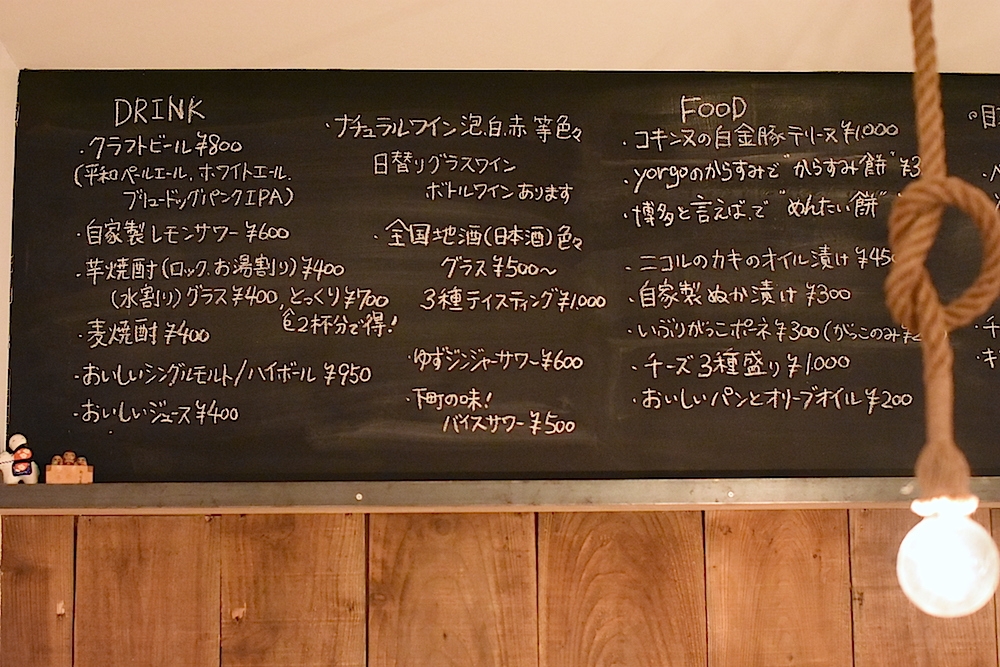 DRINK
・クラフトビール ¥800
(平和ペールエール、ホワイトエール、
ブリュードッグパンクIPA)
・自家製レモンサワー ¥600
・芋焼酎(ロック、お湯割り)¥400
(水割り)グラス¥400、とっくり¥700
2杯分で得!
・麦焼酎 ¥400
・おいしいシングルモルト/ハイボール ¥950
・おいしいジュース ¥400
・ナチュラルワイン 泡、白、赤 等色々
日替りグラスワイン
ボトルワインあります
・全国地酒(日本酒)色々
グラス¥500〜
3種テイスティング¥1,000
・ゆずジンジャーサワー ¥600
・下町の味!
バイスサワー ¥500
FOOD
・コキンヌの白金豚テリーヌ ¥1,000
・yorgoのからすみで"からすみ餅" ¥3
・博多と言えば、で "めんたい餅"
・ニコルのカキのオイル漬け ¥45
・自家製ぬか漬け ¥300
・いぶりがっこポーネ ¥300(がっこのみ¥2
・チーズ3種盛り ¥1,000
・おいしいパンとオリーブオイル ¥200